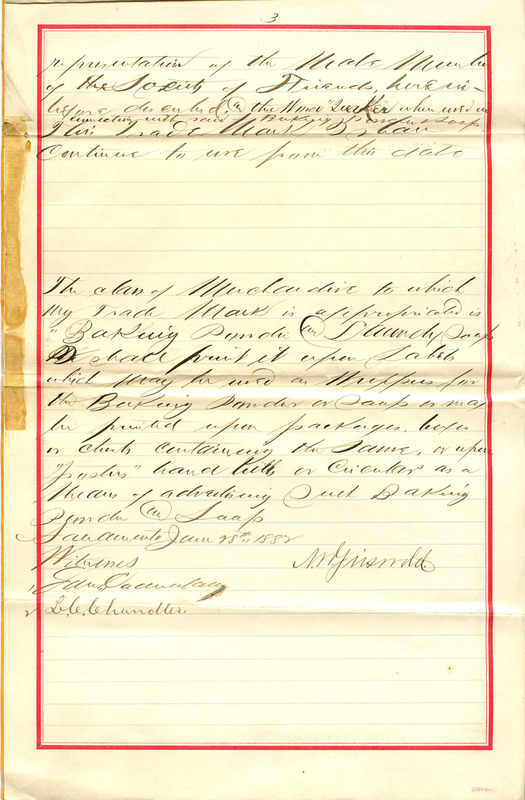 3
representation of the Male Member
of the Society of Friends, here in-
before described, (or the Word "Quaker" when used in
connection with said Baking Powder or Soap
This Trade Mark I
Continue to use from this date
The class of Merchandise to which
my Trade Mark is appropriated is
"Baking Powder (or) Laundry Soap
I shall print it upon Labels
which may be used as Wrappers for
the Baking Powder or Soap or may
be printed upon packages, boxes
or chests containing the same, or upon
"posters" hand bills or Circulars as a
Means of advertising such Baking
Powder (or) Soap
Sacramento June 28th 1882
Witness
N W Griswold
1
2 L. C. Chandler.